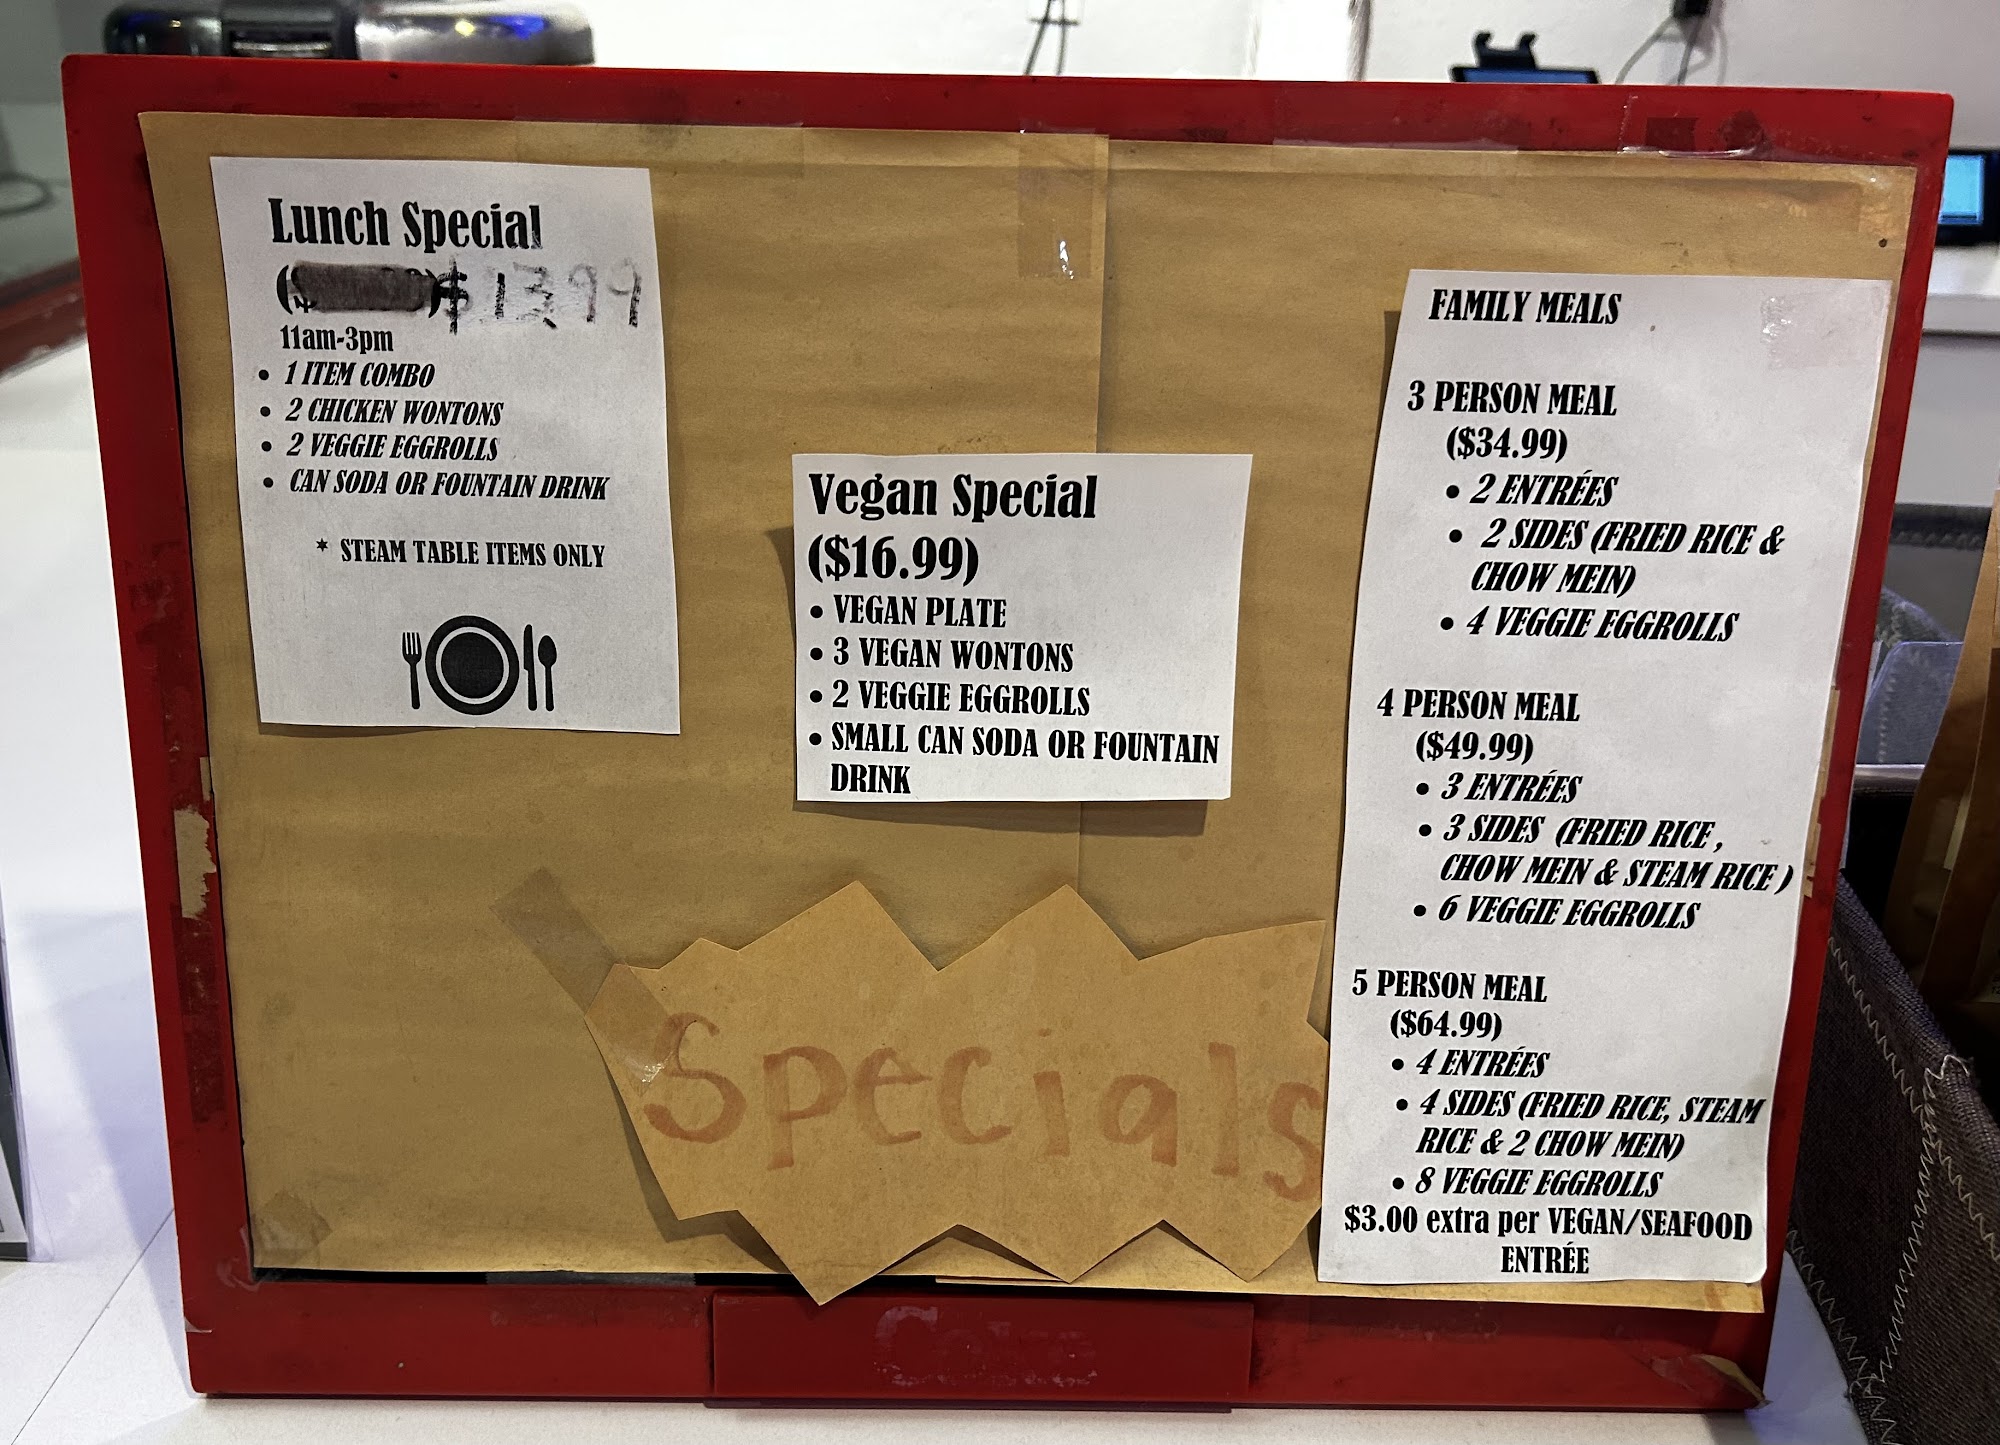 Lunch Special
( ) $13.99
11am-3pm
• 1 ITEM COMBO
• 2 CHICKEN WONTONS
• 2 VEGGIE EGGROLLS
• CAN SODA OR FOUNTAIN DRINK
* STEAM TABLE ITEMS ONLY
Vegan Special
($16.99)
• VEGAN PLATE
• 3 VEGAN WONTONS
• 2 VEGGIE EGGROLLS
• SMALL CAN SODA OR FOUNTAIN
DRINK
Specials
FAMILY MEALS
3 PERSON MEAL
($34.99)
• 2 ENTRÉES
• 2 SIDES (FRIED RICE &
CHOW MEIN)
• 4 VEGGIE EGGROLLS
4 PERSON MEAL
($49.99)
• 3 ENTRÉES
• 3 SIDES (FRIED RICE ,
CHOW MEIN & STEAM RICE )
• 6 VEGGIE EGGROLLS
5 PERSON MEAL
($64.99)
• 4 ENTRÉES
• 4 SIDES (FRIED RICE, STEAM
RICE & 2 CHOW MEIN)
• 8 VEGGIE EGGROLLS
$3.00 extra per VEGAN/SEAFOOD
ENTRÉE